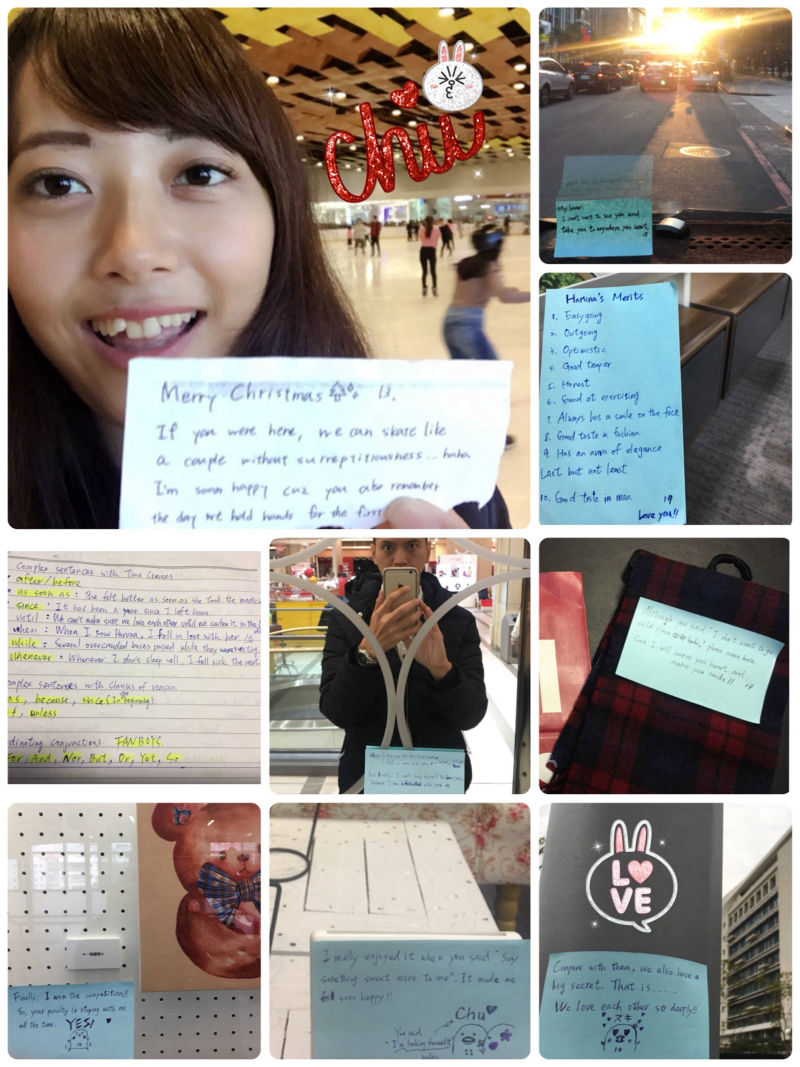 chu
Merry Christmas 13.
If you were here, we can skate like
a couple without surreptitiousness... haha
I'm sooo happy cuz you also remember
the day we hold hands for the first
My lover:
I can't wait to see you and
take you to anywhere you want.
18
Haruna's Merits
1. Easygoing
2. Outgoing
3. Optimistic
4. Good temper
5. Honest
6. Good at exercising
7. Always has a smile on the face
8. Good taste in fashion
9. Has an aura of elegance
Last but not least
10. Good taste in man 19
Love you!!
Complex sentences with Time Clauses:
after/before
as soon as : She felt better as soon as she took the medicine
since : It has been a year since I left home.
until : We can't make sure we love each other until we confirm it in the
when : When I saw Haruna, I fell in love with her. 16
while : Several overcrowded buses passed while they were waiting.
whenever : Whenever I don't sleep well, I fell sick the next
omplex sentences with clauses of reason:
as, because, since (In the beginning)
if, unless
rdinating conjunctions FANBOYS.
For, And, Nor, But, Or, Yet, So.
Although you said "I don't want to go
cold place", please come here.
Cuz I will warm you heart, and
make you smile!! 17
Finally, I won the competition!!
So, your penalty is staying with me
all the time. YES!
I really enjoyed it when you said "Say
something sweet more to me". It made me
feel sooo happy!!
Chu
You said
I'm looking forward
11
LOVE
Compare with them, we also have a
big secret. That is......
We love each other so deeply!!
スキ
10